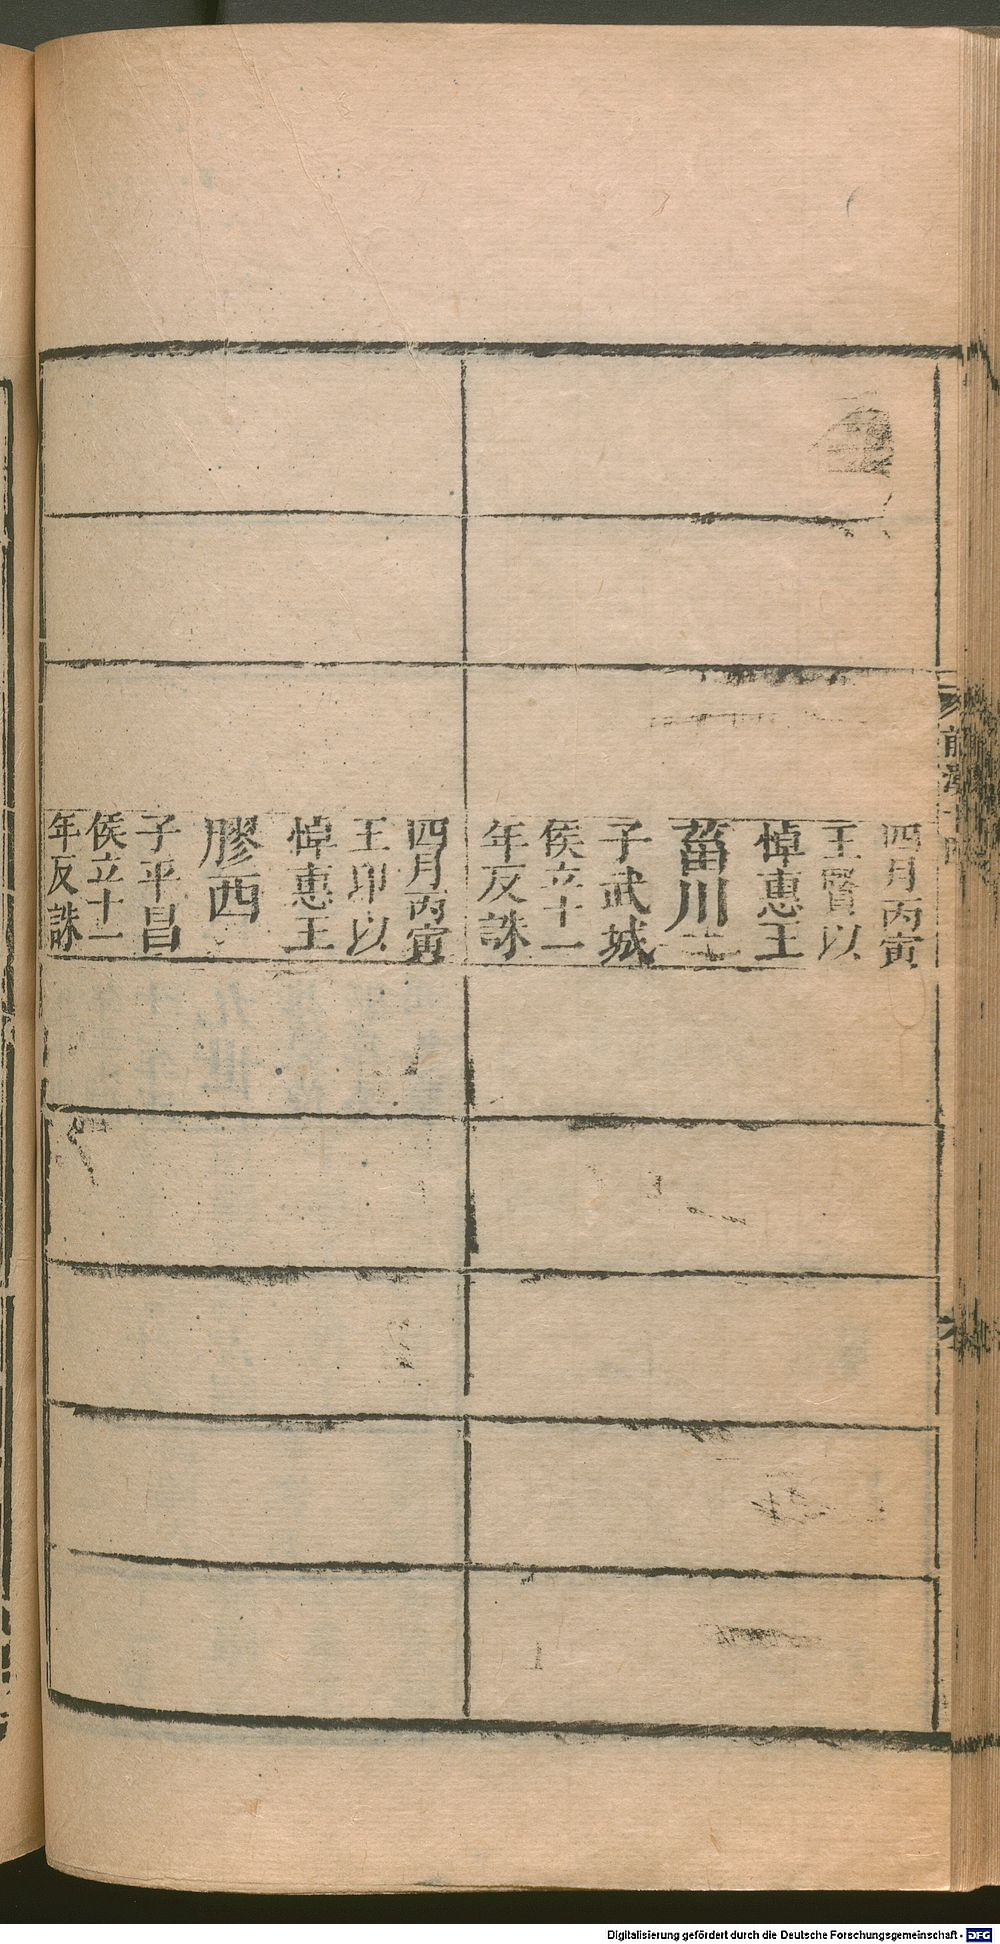 四月丙寅
王賢以
悼惠王
菑川
子武城
侯立十一
年反誅
四月丙寅
王卬以
悼惠王
膠西
子平昌
侯立十一
年反誅
Digitalisierung gefördert durch die Deutsche Forschungsgemeinschaft - DFG